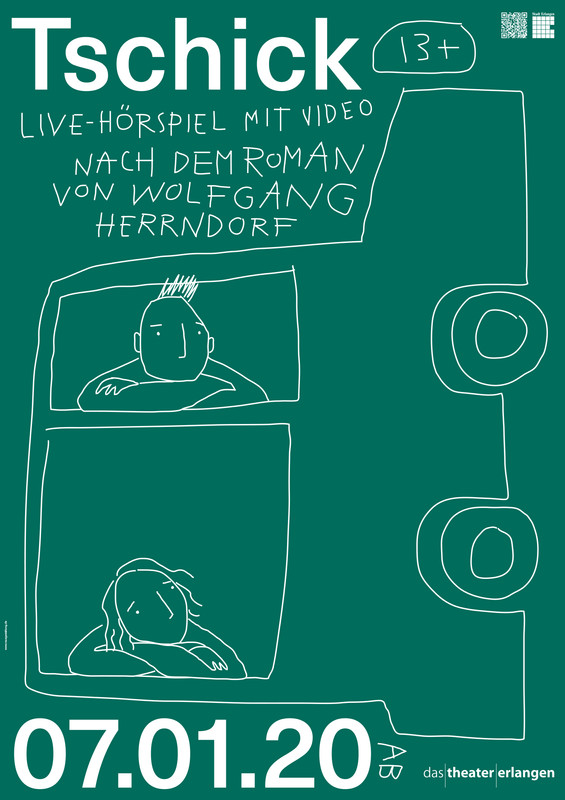 Tschick
13+
Stadt Erlangen
LIVE-HÖRSPIEL MIT VIDEO
NACH DEM ROMAN
VON WOLFGANG
HERRNDORF
07.01.20
AB
das|theater|erlangen